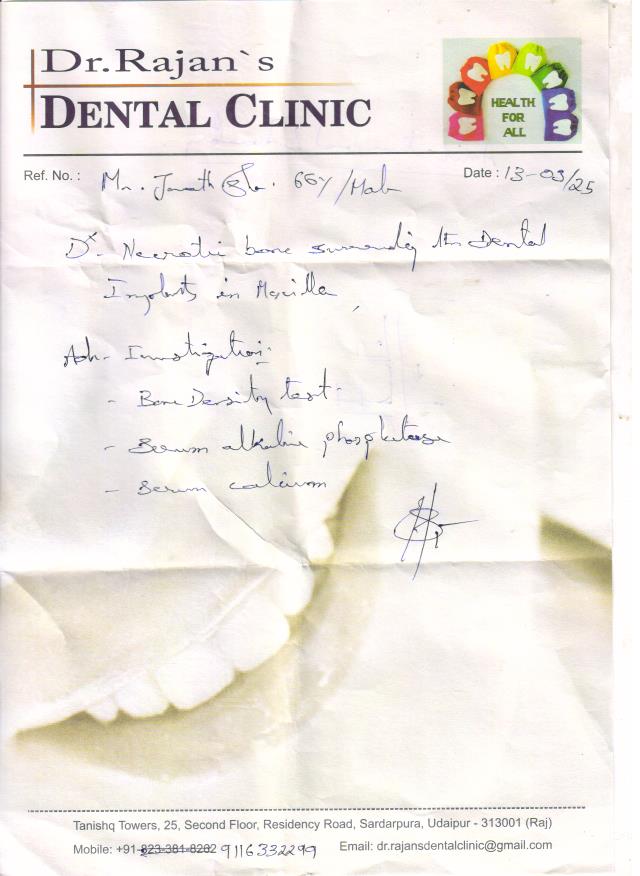 Dr.Rajan`s
DENTAL CLINIC
HEALTH
FOR
ALL
Ref. No. : Mr. 66y/Male
Date : 13-03/25
Dx - Necrotic bone surrounding the Dental
Implants in Maxilla
Adv - Investigation:
- Bone Density test.
- Serum alkaline phosphatase
- Serum calcium
Tanishq Towers, 25, Second Floor, Residency Road, Sardarpura, Udaipur - 313001 (Raj)
Mobile: +91-823-381-8282 9116332299 Email: dr.rajansdentalclinic@gmail.com